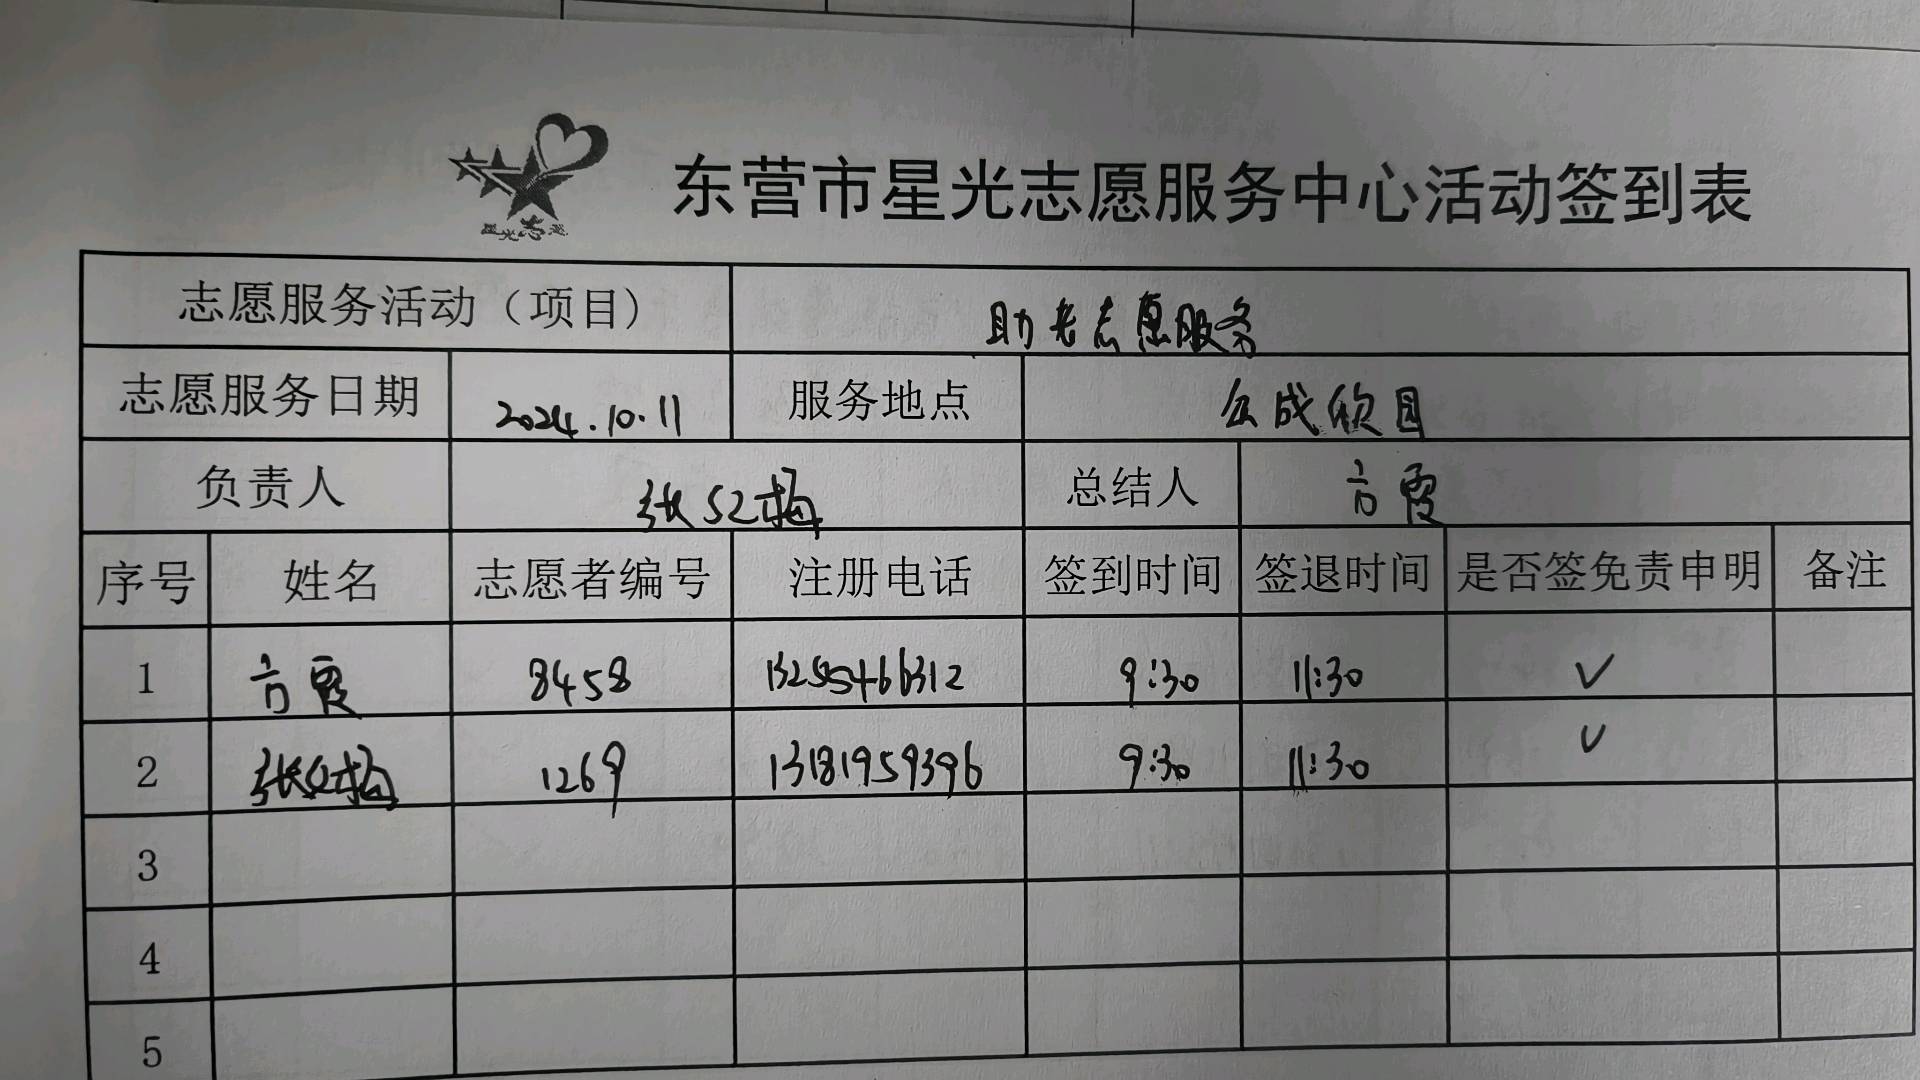 星光志愿
东营市星光志愿服务中心活动签到表
志愿服务活动（项目） 助老志愿服务
志愿服务日期 2024.10.11 服务地点 众成欣园
负责人 张红梅 总结人 方霞
序号 姓名 志愿者编号 注册电话 签到时间 签退时间 是否签免责申明 备注
1 方霞 8458 13255466312 9:30 11:30 ✓
2 张红梅 1269 13181959396 9:30 11:30 ✓
3
4
5